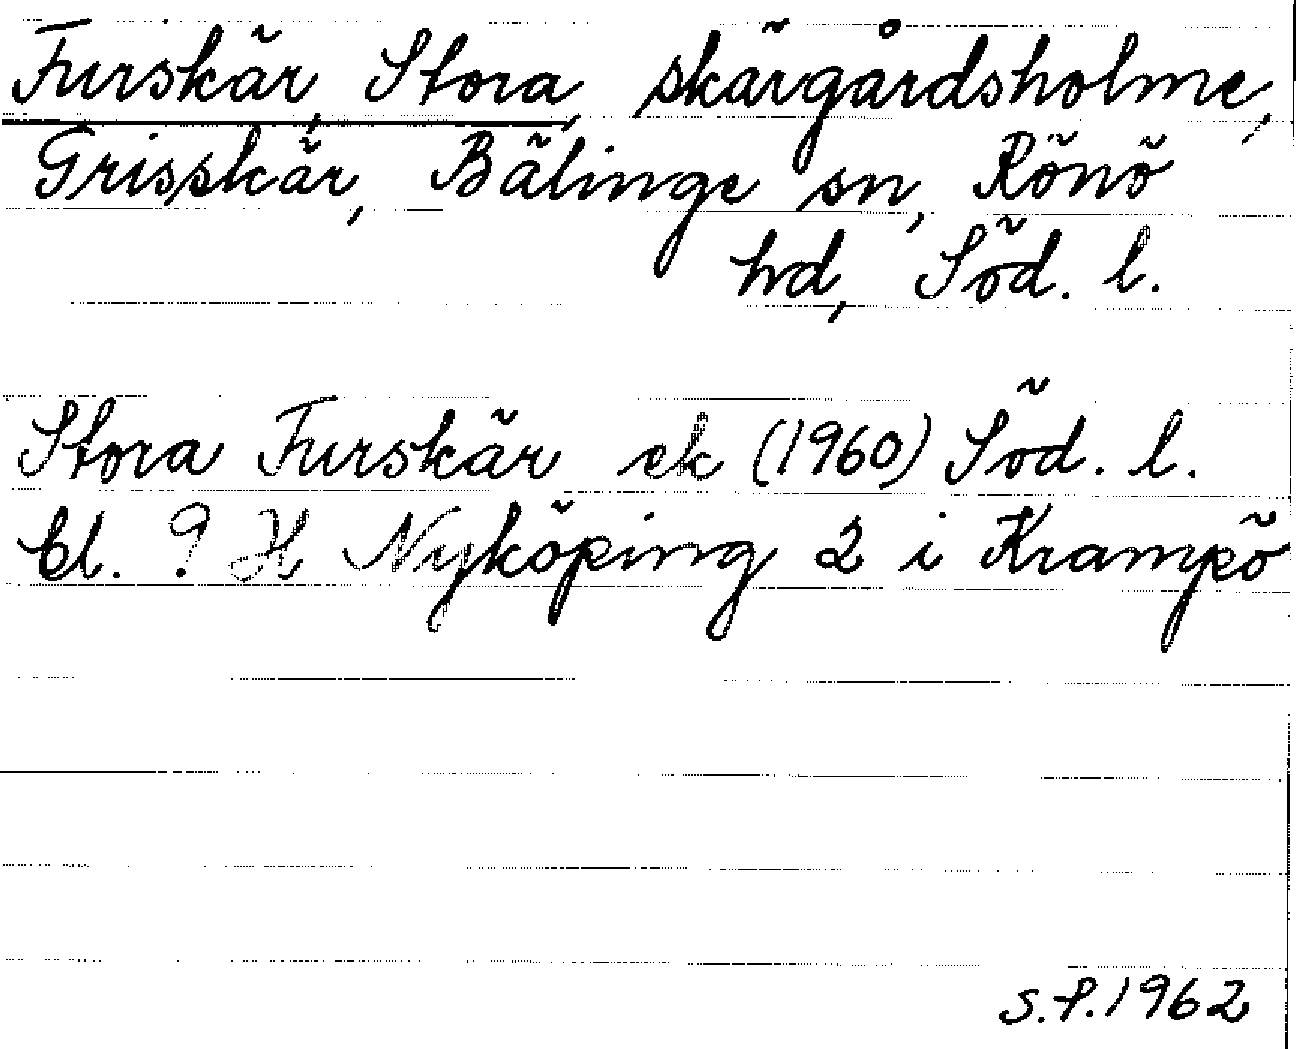 Furskär, Stora, skärgårdsholme,
Grisskär, Bälinge sn, Rönö
hd, Söd. l.
Stora Furskär ek (1960) Söd. l.
bl. 9 H Nyköping 2 i Krampö
S.P. 1962